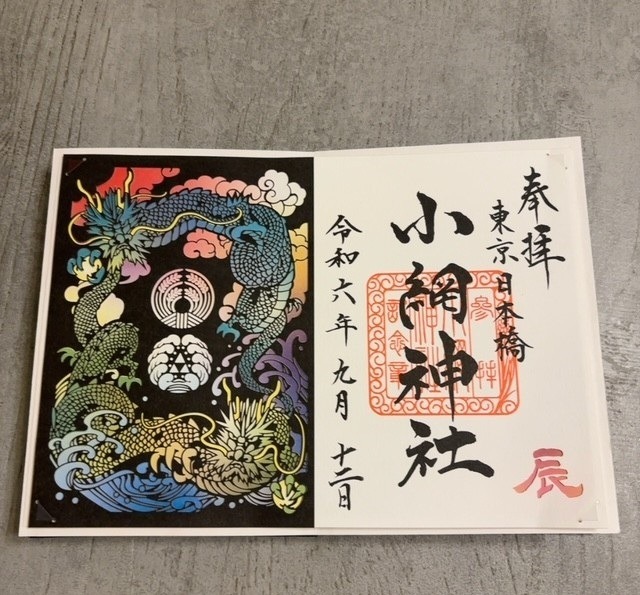 奉拝
東京日本橋
小網神社
令和六年九月十二日
辰